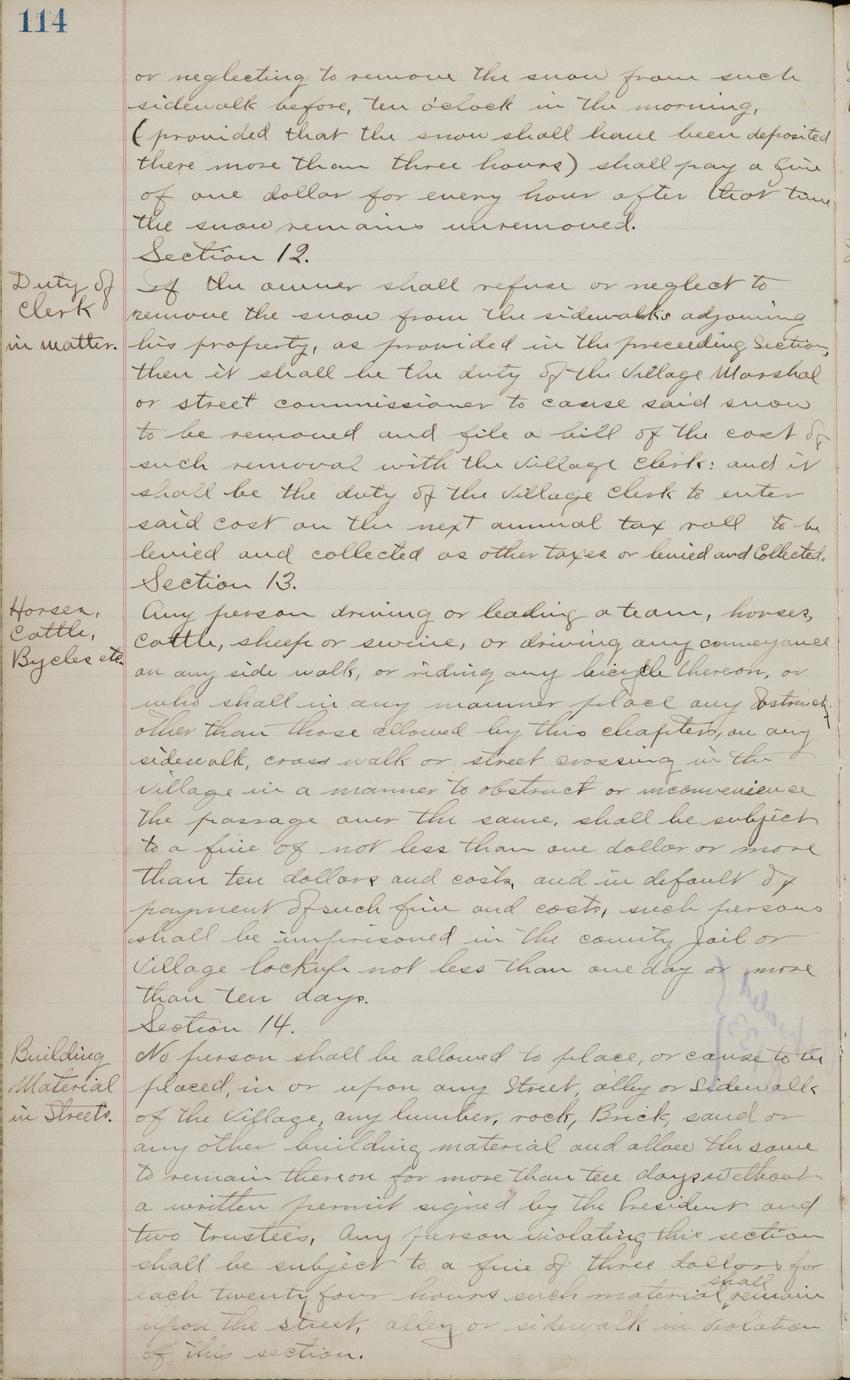 114
or neglecting to remove the snow from such
sidewalk before, ten o'clock in the morning,
(provided that the snow shall have been deposited
there more than three hours) shall pay a fine
of one dollar for every hour after that time
the snow remains unremoved.
Section 12.
Duty of
Clerk
in matter.
If the owner shall refuse or neglect to
remove the snow from the sidewalks adjoining
his property, as provided in the preceeding Section,
then it shall be the duty of the Village Marshal
or street commissioner to cause said snow
to be removed and file a bill of the cost of
such removal with the Village Clerk: and it
shall be the duty of the Village Clerk to enter
said cost on the next annual tax roll to be
levied and collected as other taxes or levied and Collected.
Section 13.
Horses,
Cattle,
Bycles etc.
Any person driving or leading a team, horses,
Cattle, sheep or swine, or driving any conveyance
on any side walk, or riding any bicycle thereon, or
who shall in any manner place any Obstruct.
other than those allowed by this chapter, on any
sidewalk, cross walk or street crossing in the
Village in a manner to obstruct or inconvenience
the passage over the same, shall be subject
to a fine of not less than one dollar or more
than ten dollars and costs, and in default of
payment of such fine and costs, such persons
shall be imprisoned in the county Jail or
Village lockup not less than one day or more
than ten days.
Section 14.
Building
Material
in Streets.
No person shall be allowed to place, or cause to be
placed, in or upon any Street, alley or Sidewalk
of the Village, any lumber, rock, Brick, sand or
any other building material and allow the same
to remain thereon for more than ten days without
a written permit signed by the President and
two trustees, Any person violating this section
shall be subject to a fine of three dollars for
each twenty four hours such material shall remain
upon the street, alley or sidewalk in violation
of this section.